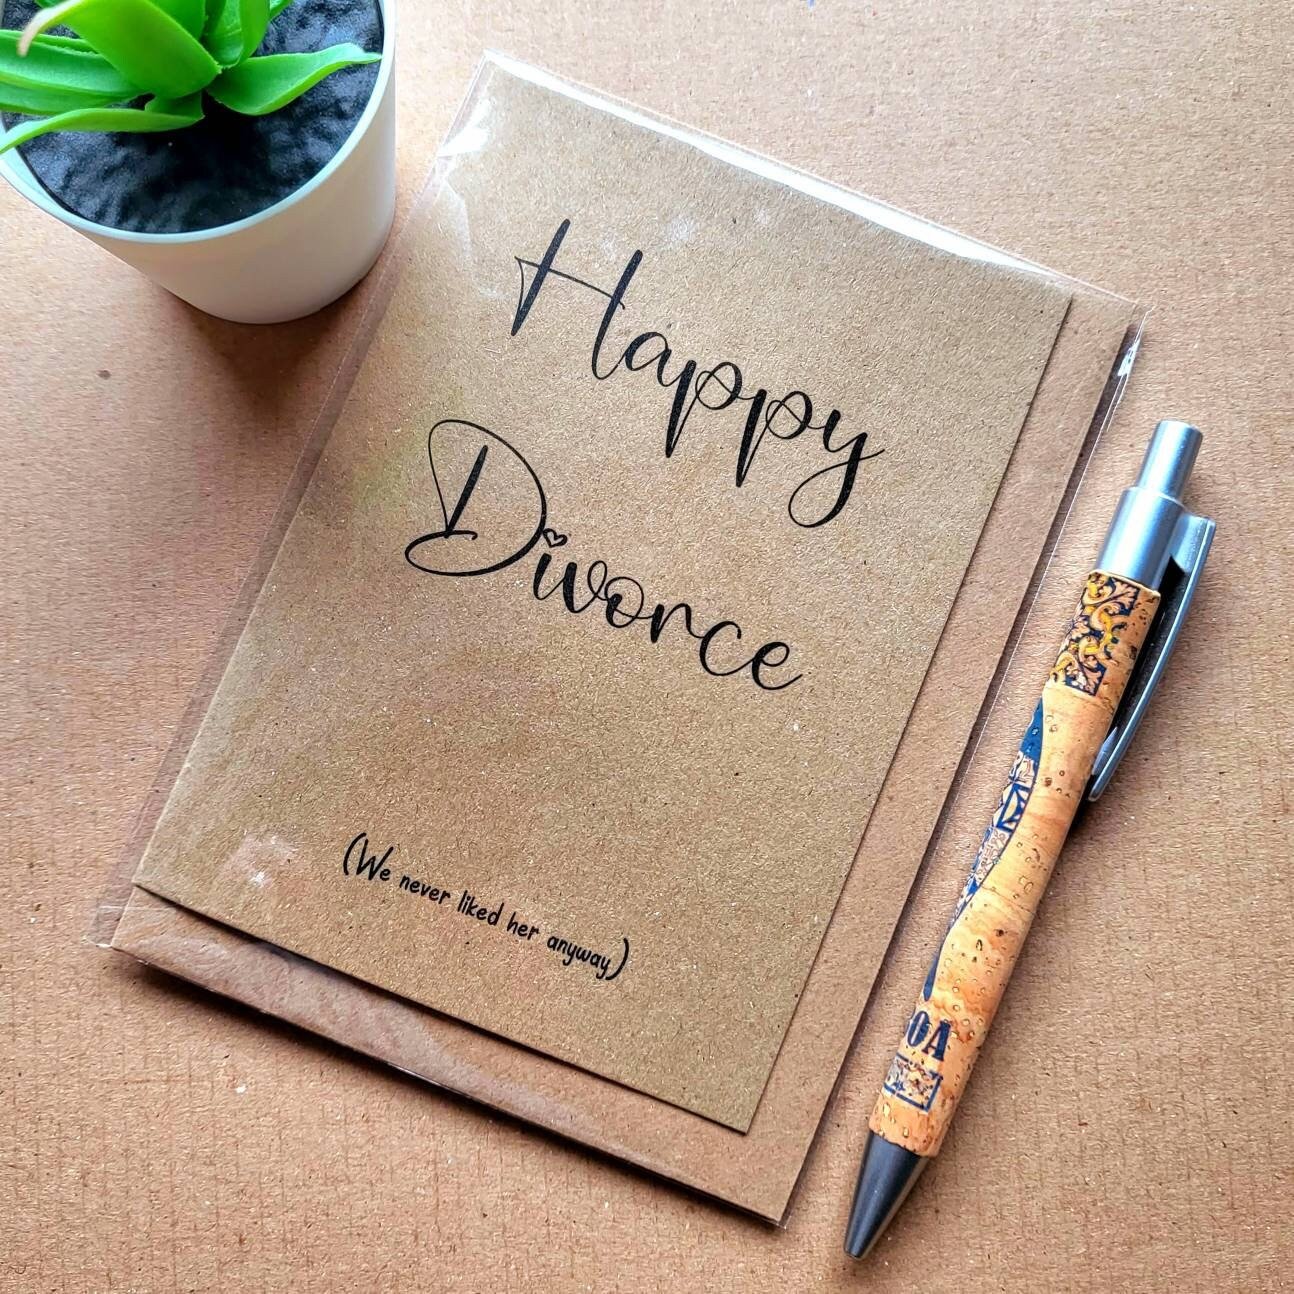 Happy
Divorce
(We never liked her anyway)
OA